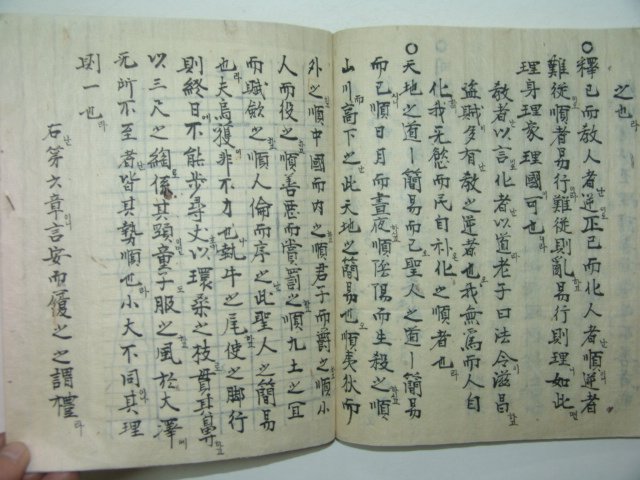 之也
○釋己而教人者逆正己而化人者順逆者
難從順者易行難從則亂易行則理如此
理身理家理國可也
教者以言化者以道老子曰法令滋昌
盜賊多有教之逆者也我無爲而人自
化我無慾而民自朴化之順者也
○天地之道一簡易而已聖人之道一簡易
而已順日月而晝夜順陰陽而生殺之順
山川而高下之此天地之簡易也順夷狄而
外之順中國而內之順君子而爵之順小
人而役之順善惡而賞罰之順九土之宜
而賦斂之順人倫而序之此聖人之簡易
也夫烏獲非不力也執牛之尾使之脚行
則終日不能步尋丈以環桑之枝貫其鼻
以三尺之綯係其頸童子服之風於大澤
无所不至者皆其勢順也小大不同其理
則一也
右第六章言安而履之之謂禮